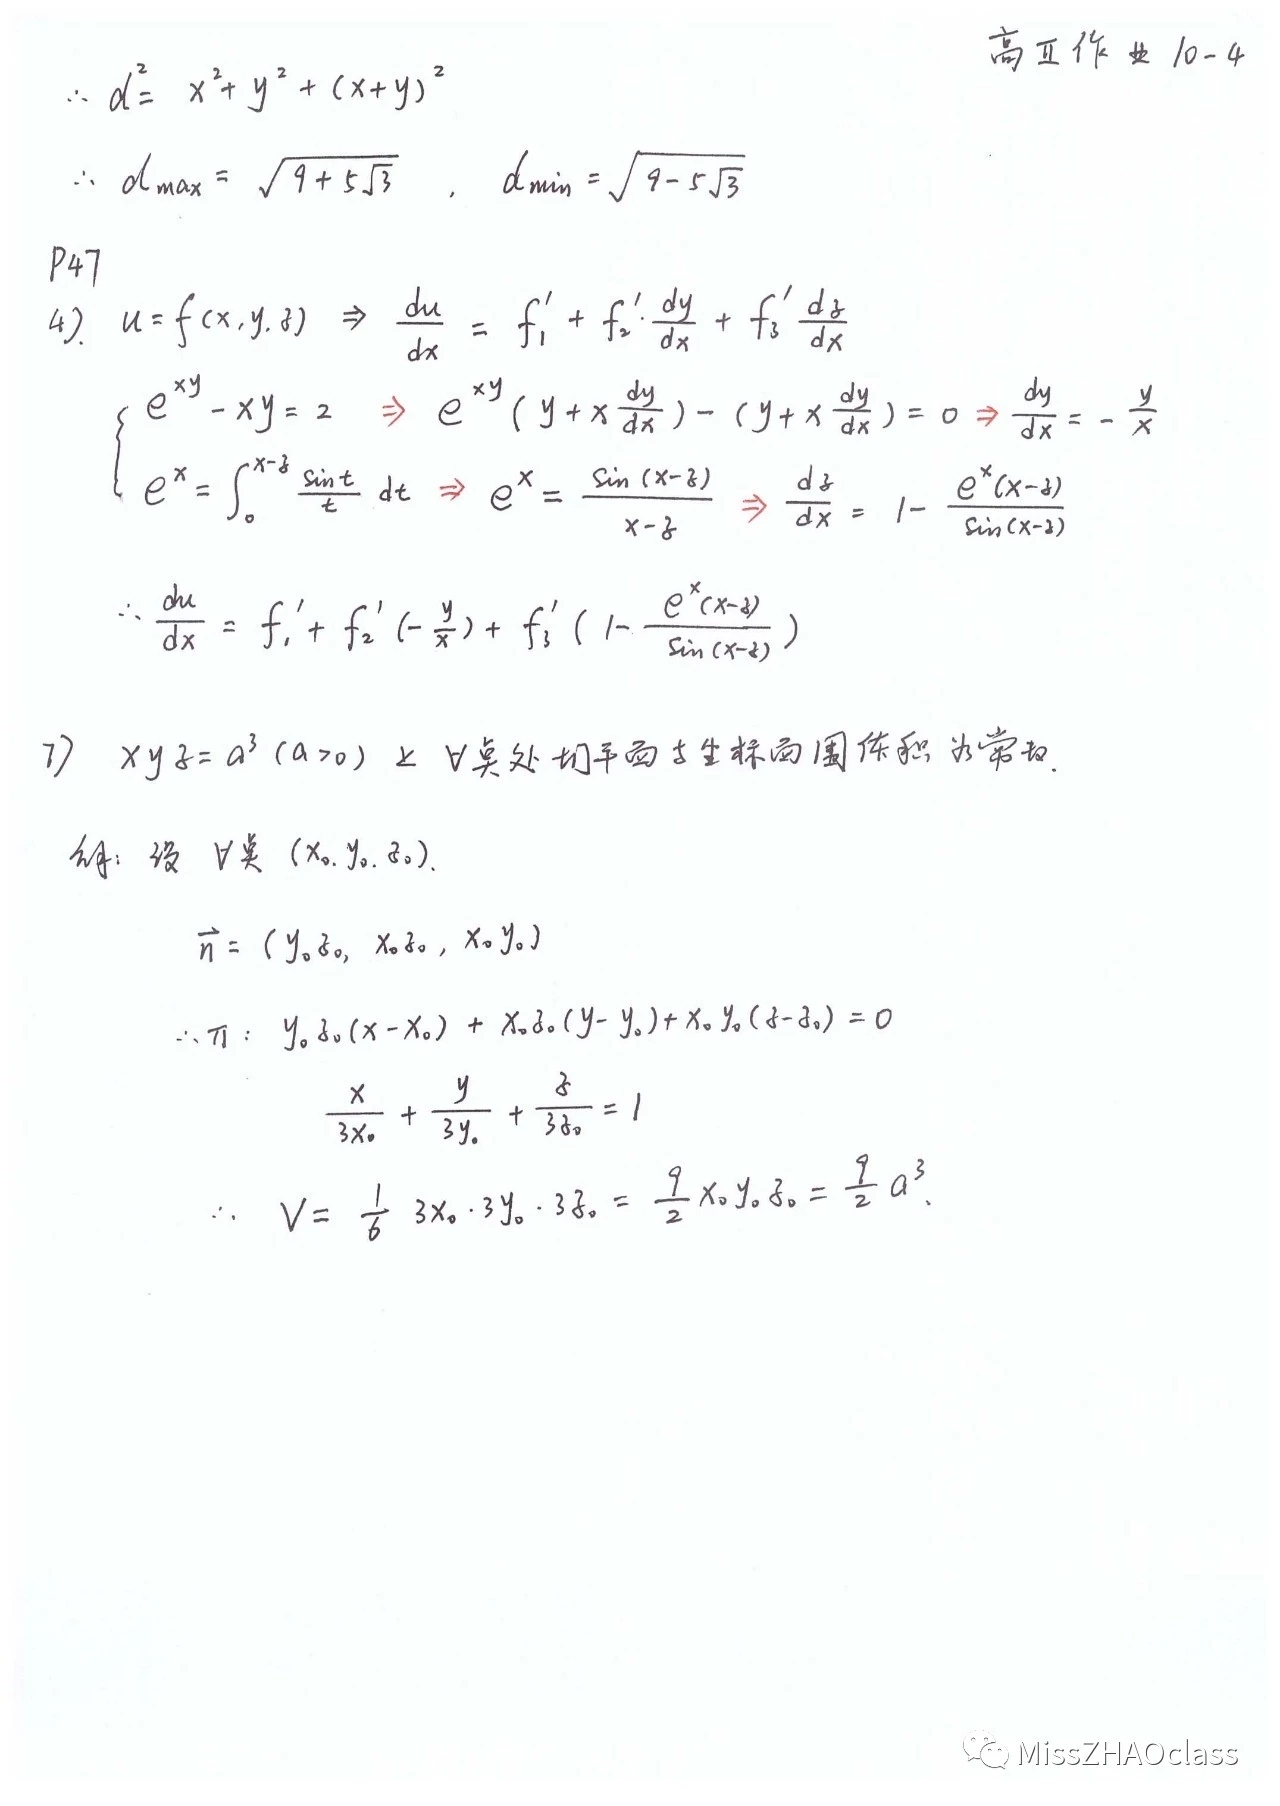 高Ⅱ作业 10-4
∴ d² = x² + y² + (x+y)²
∴ dmax = √(9+5√3) , dmin = √(9-5√3)
P47
4). u = f(x,y,z) ⇒ du/dx = f₁' + f₂'·dy/dx + f₃' dz/dx
e^xy - xy = 2 ⇒ e^xy (y + x dy/dx) - (y + x dy/dx) = 0 ⇒ dy/dx = - y/x
e^x = ∫₀^(x-z) sint/t dt ⇒ e^x = sin(x-z)/(x-z) ⇒ dz/dx = 1 - e^x(x-z)/sin(x-z)
∴ du/dx = f₁' + f₂' (-y/x) + f₃' (1 - e^x(x-z)/sin(x-z))
7) xyz = a³ (a>0) 上 ∀点处切平面与坐标面围体积为常数.
解: 设 ∀点 (x₀. y₀. z₀).
n⃗ = (y₀z₀, x₀z₀, x₀y₀)
∴ π: y₀z₀(x-x₀) + x₀z₀(y-y₀) + x₀y₀(z-z₀) = 0
x/3x₀ + y/3y₀ + z/3z₀ = 1
∴ V = 1/6 3x₀·3y₀·3z₀ = 9/2 x₀y₀z₀ = 9/2 a³.
MissZHAOclass